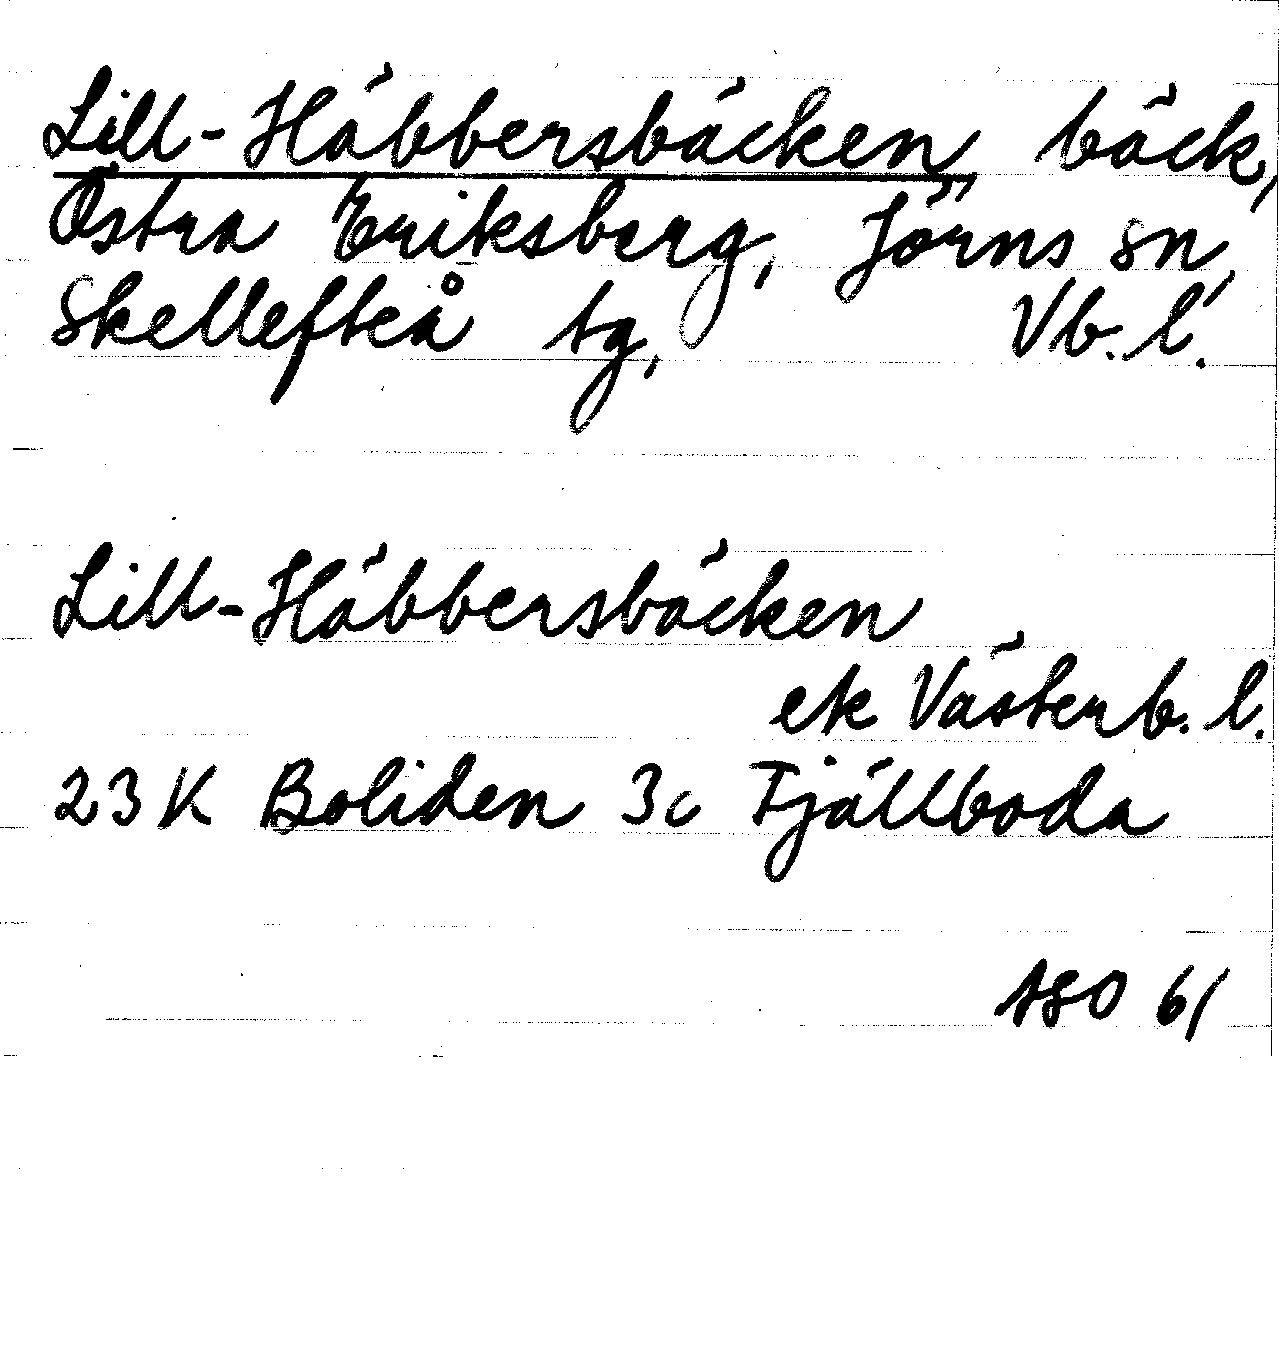 Lill-Häbbersbäcken bäck,
Östra Eriksberg, Jörns sn,
Skellefteå tg, Vb. l.
Lill-Häbbersbäcken
ek Västerb. l.
23 K Boliden 3c Fjällboda
ASO 61